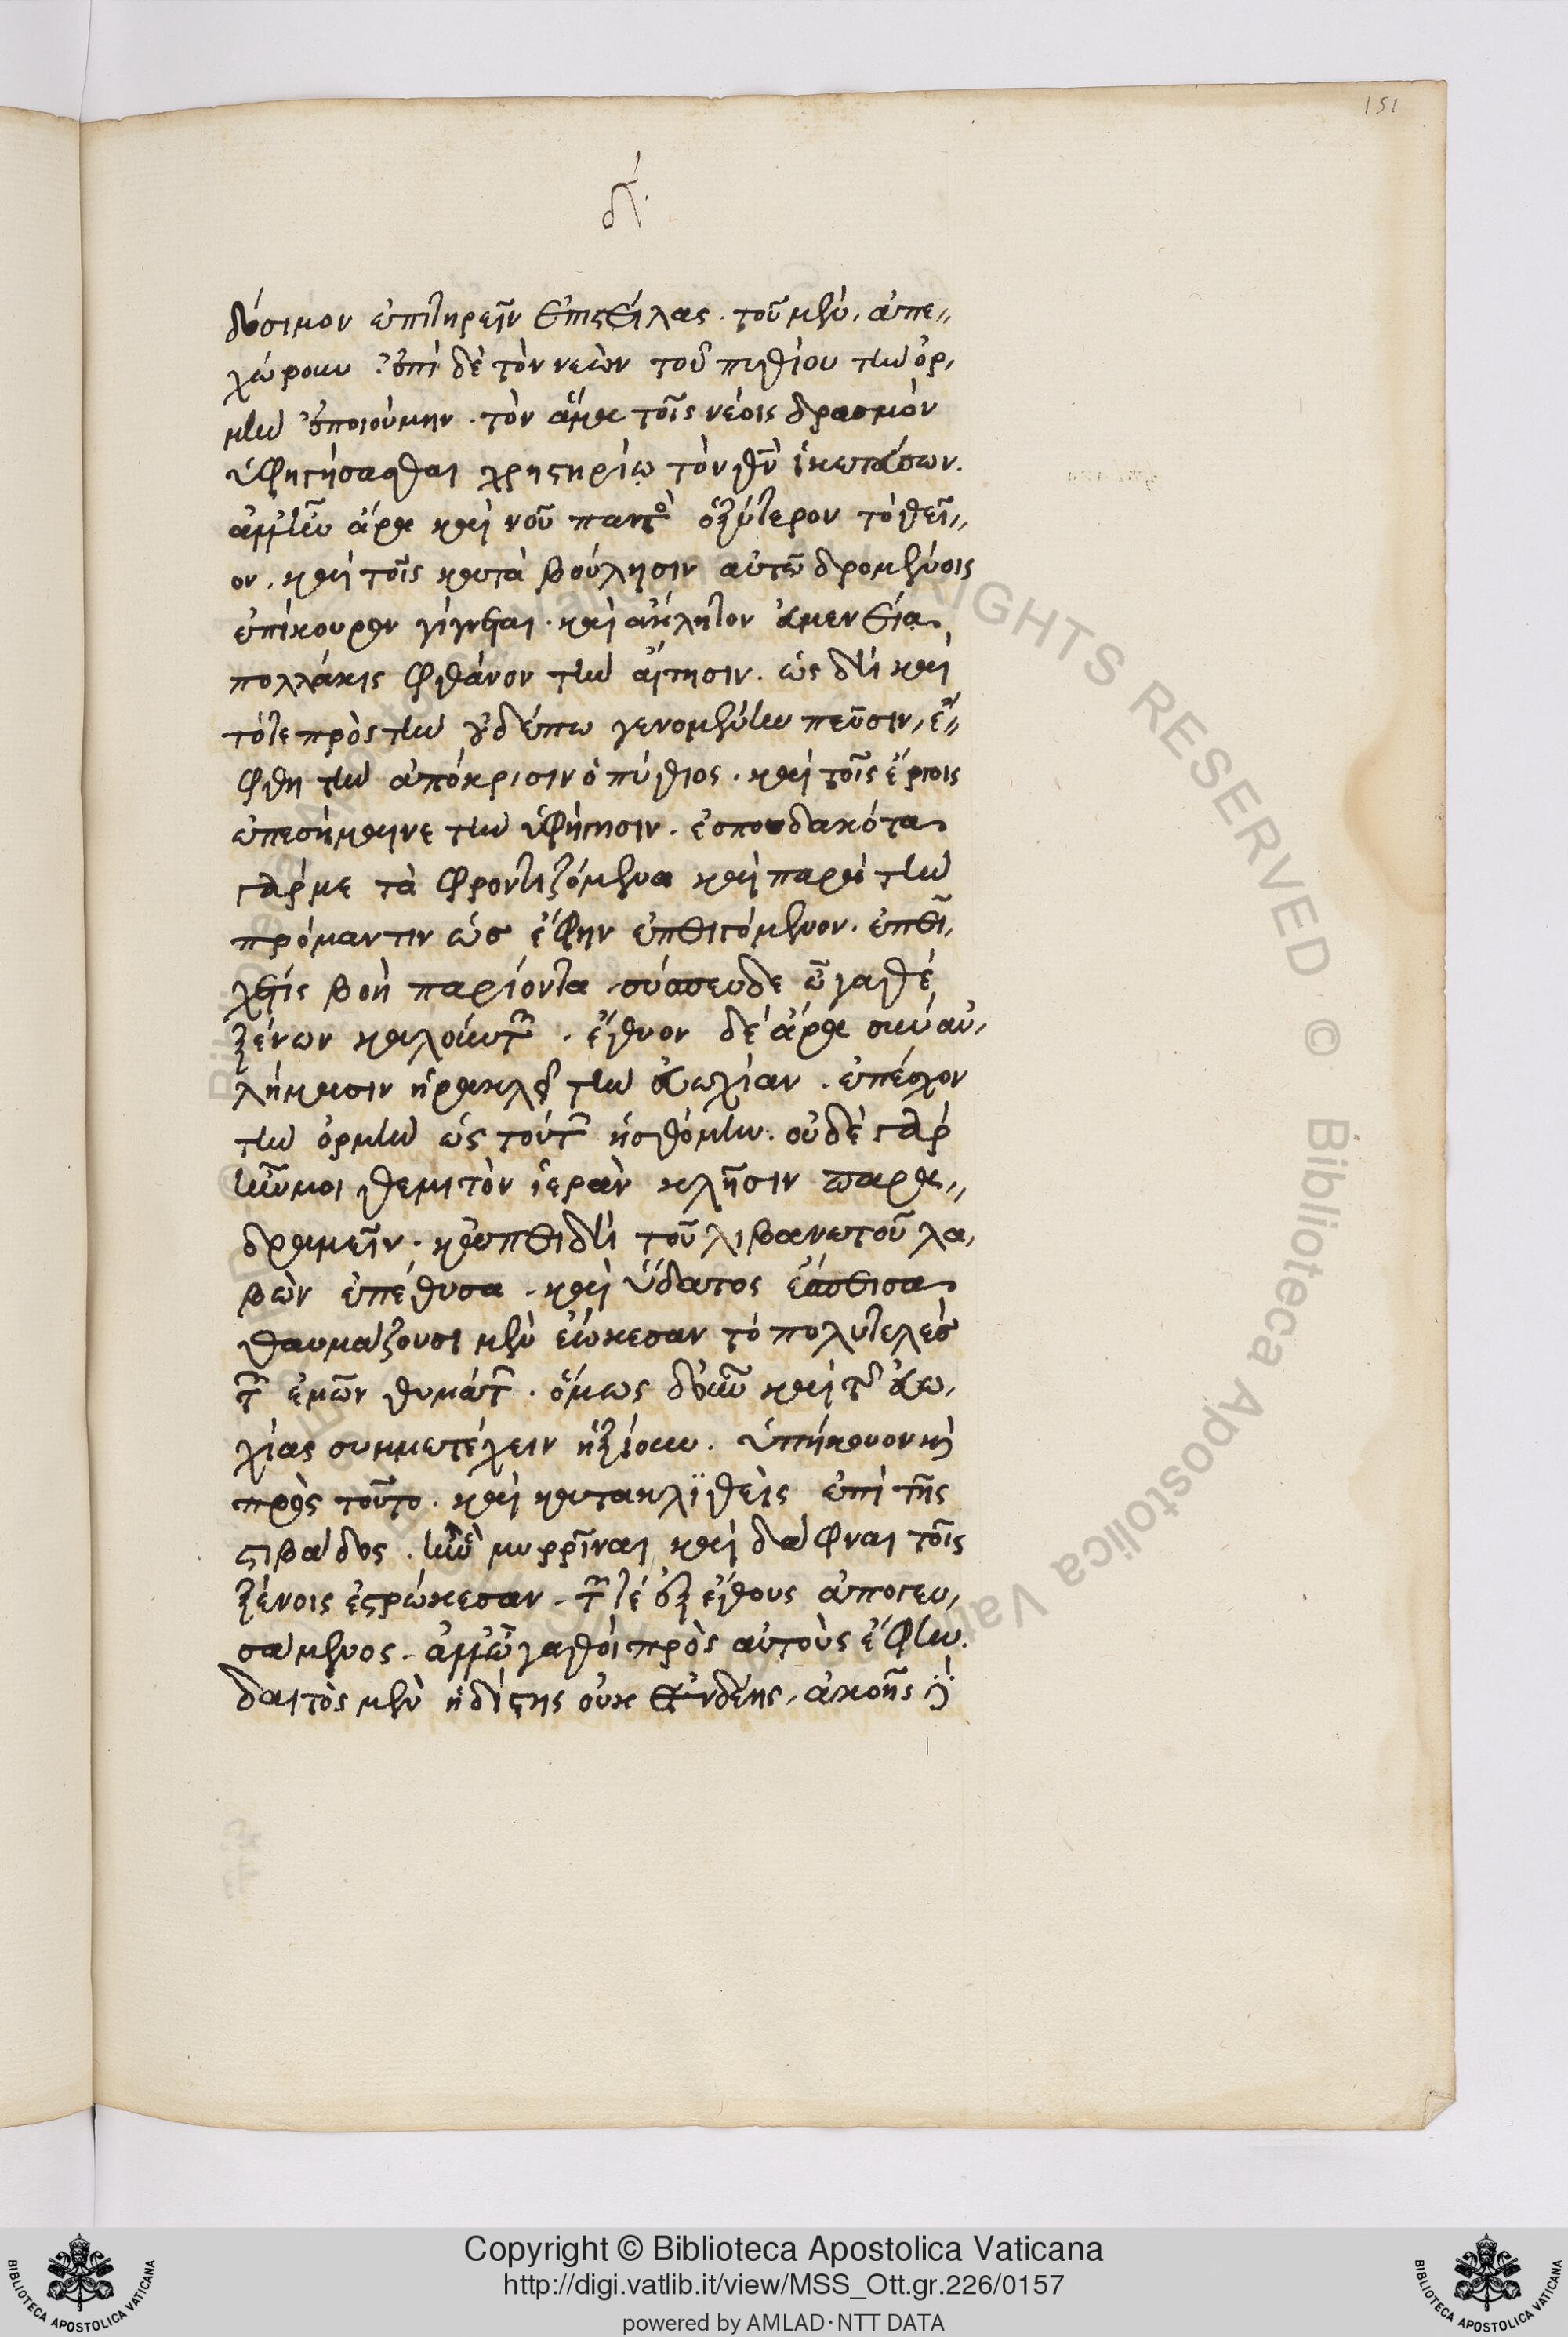 151
δόσιμον ἐπιτηρεῖν ἐπιστείλας. τοῦ μὲν, ἀπε
χώρουν. ἐπὶ δὲ τὸν νεὼν τοῦ πυθίου τὴν ὁρ
μὴν ἐποιούμην. τὸν ἅμα τοῖς νέοις δρασμὸν
ὑφηγήσασθαι χρηστηρίω τὸν θεὸν
ἀλλ' ἦν ἄρα καὶ νοῦ παντὸς ὀξύτερον τὸ θεῖ
ον. καὶ τοῖς κατὰ βούλησιν αὐτῶ δρωμένοις
ἐπίκουρον γίγνεται. καὶ ἄκλητον εὐμενεία
πολλάκις φθάνον τὴν αἴτησιν. ὡς δὴ καὶ
τότε πρὸς τὴν οὐδέπω γενομένην πεῦσιν, ἔ
φθη τὴν ἀπόκρισιν ὁ πύθιος. καὶ τοῖς ἔργοις
ἐπεσήμαινε τὴν ὑφήγησιν. ἐσπουδακότα
γάρ με τὰ φροντιζόμενα καὶ παρὰ τὴν
πρόμαντιν ὡς ἔφην ἐπειγόμενον. ἐπεῖ
χε τίς βοὴ παριόντα. σύσπευδε ὦγαθέ
ξένων καλούντων. ἔθυον δὲ ἄρα σὺν αὐ
λήμασιν ἡρακλεῖ τὴν εὐωχίαν. ἐπέσχον
τὴν ὁρμὴν ὡς τούτων ἠσθόμην. οὐδὲ γὰρ
ἦν μοι θεμιτὸν ἱερὰν κλῆσιν παρα
δραμεῖν. κἄπειτα δὴ τοῦ λιβανωτοῦ λα
βὼν ἐπέθυσα. καὶ ὕδατος ἔσπεισα
θαυμάζουσι μὲν ἐώκεσαν τὸ πολυτελὲς
τῶν ἐμῶν θυμάτων. ὅμως δ' οὖν καὶ τῆς εὐω
χίας συμμετέχειν ἠξίουν. ὑπήκουον καὶ
πρὸς τοῦτο. καὶ κατακλιθεὶς ἐπὶ τῆς
στιβάδος. ἣν μυρρῖναι καὶ δάφναι τοῖς
ξένοις ἐστρώκεσαν. τῶν τε ἐξ ἔθους ἀπογευ
σάμενος. ἀλλ' ὦγαθοὶ πρὸς αὐτοὺς ἔφην.
δαιτὸς μὲν ἡδίστης οὐκ ἐνδεὴς, ἀκοῆς δὲ
Copyright © Biblioteca Apostolica Vaticana
http://digi.vatlib.it/view/MSS_Ott.gr.226/0157
powered by AMLAD·NTT DATA